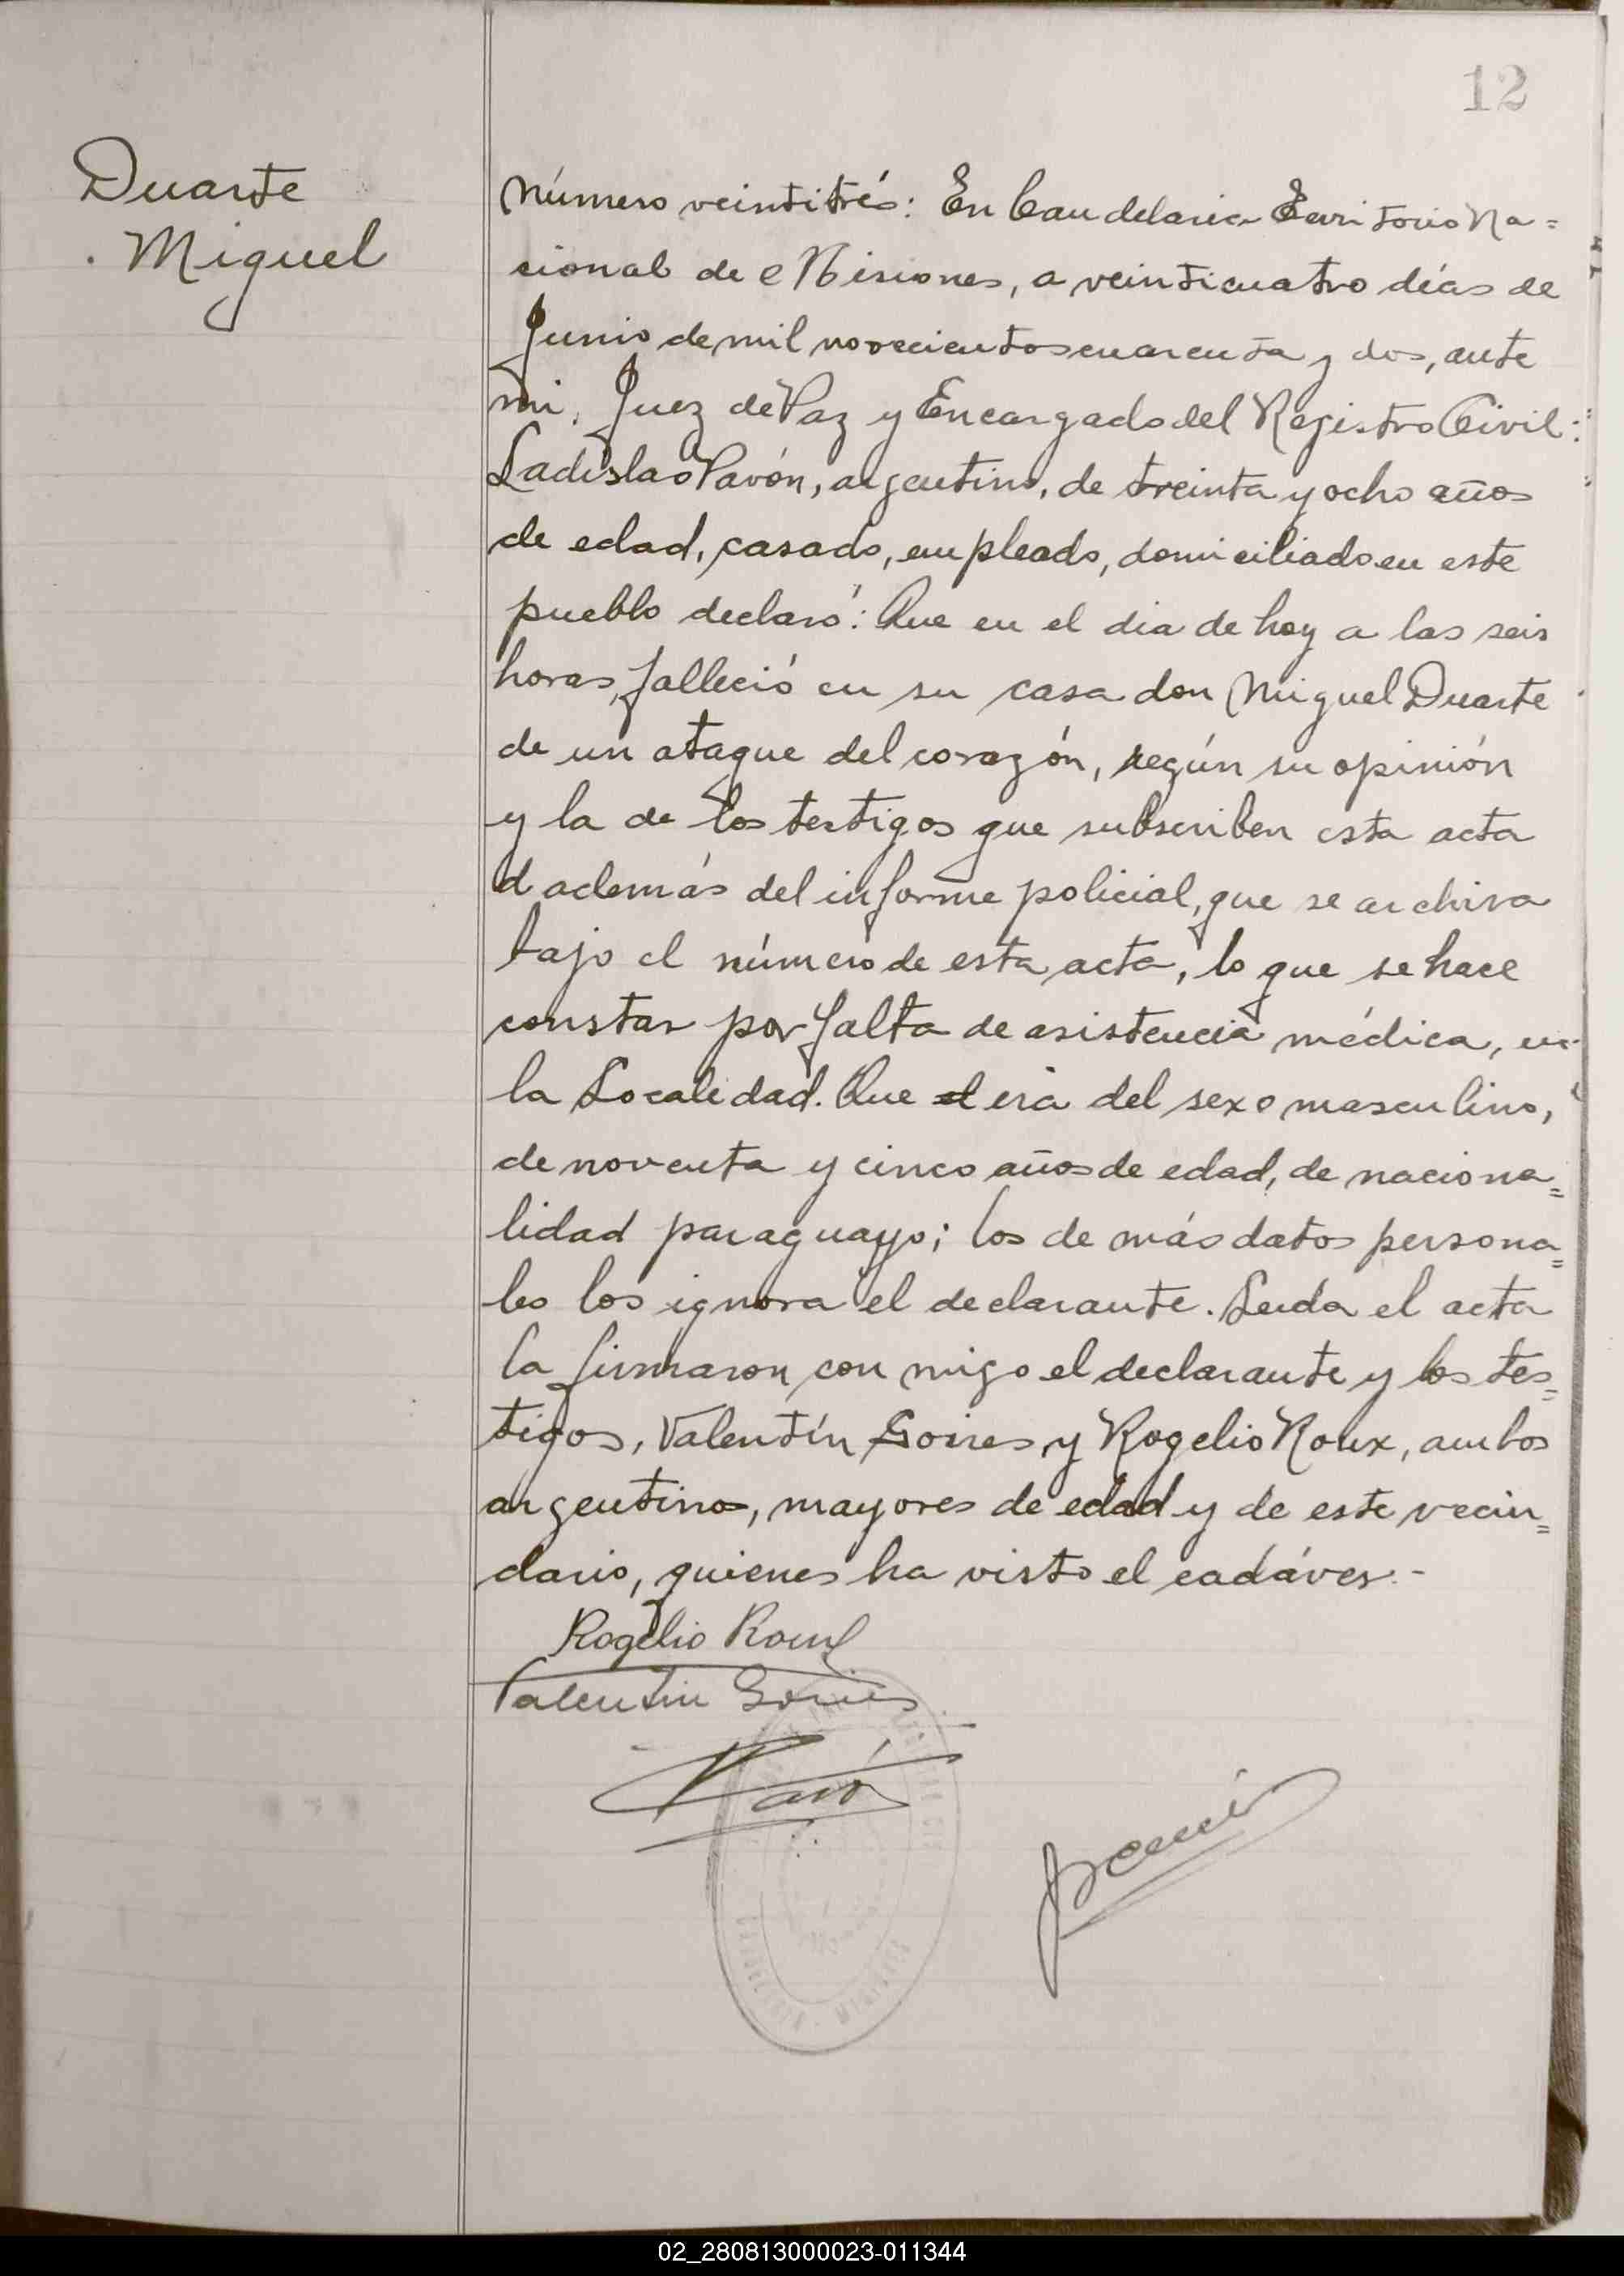 12
Duarte
Miguel
Número veintitrés: En Candelaria Territorio Na=
cional de Misiones, a veinticuatro días de
Junio de mil novecientos cuarenta y dos, ante
mi, Juez de Paz y Encargado del Registro Civil:
Ladislao Pavón, argentino, de treinta y ocho años
de edad, casado, empleado, domiciliado en este
pueblo declaró: Que en el dia de hoy a las seis
horas, falleció en su casa don Miguel Duarte
de un ataque del corazón, según su opinión
y la de los testigos que subscriben esta acta
además del informe policial, que se archiva
bajo el número de esta acta, lo que se hace
constar por falta de asistencia médica, en
la Localidad. Que era del sexo masculino,
de noventa y cinco años de edad, de naciona=
lidad paraguayo; los de más datos persona=
les los ignora el declarante. Leida el acta
la firmaron con migo el declarante y los tes=
tigos, Valentín Goires y Rogelio Roux, ambos
argentinos, mayores de edad y de este vecin=
dario, quienes ha visto el cadáver.-
Rogelio Roux
Valentin
Pavón
CANDELARIA - MISIONES
02_280813000023-011344